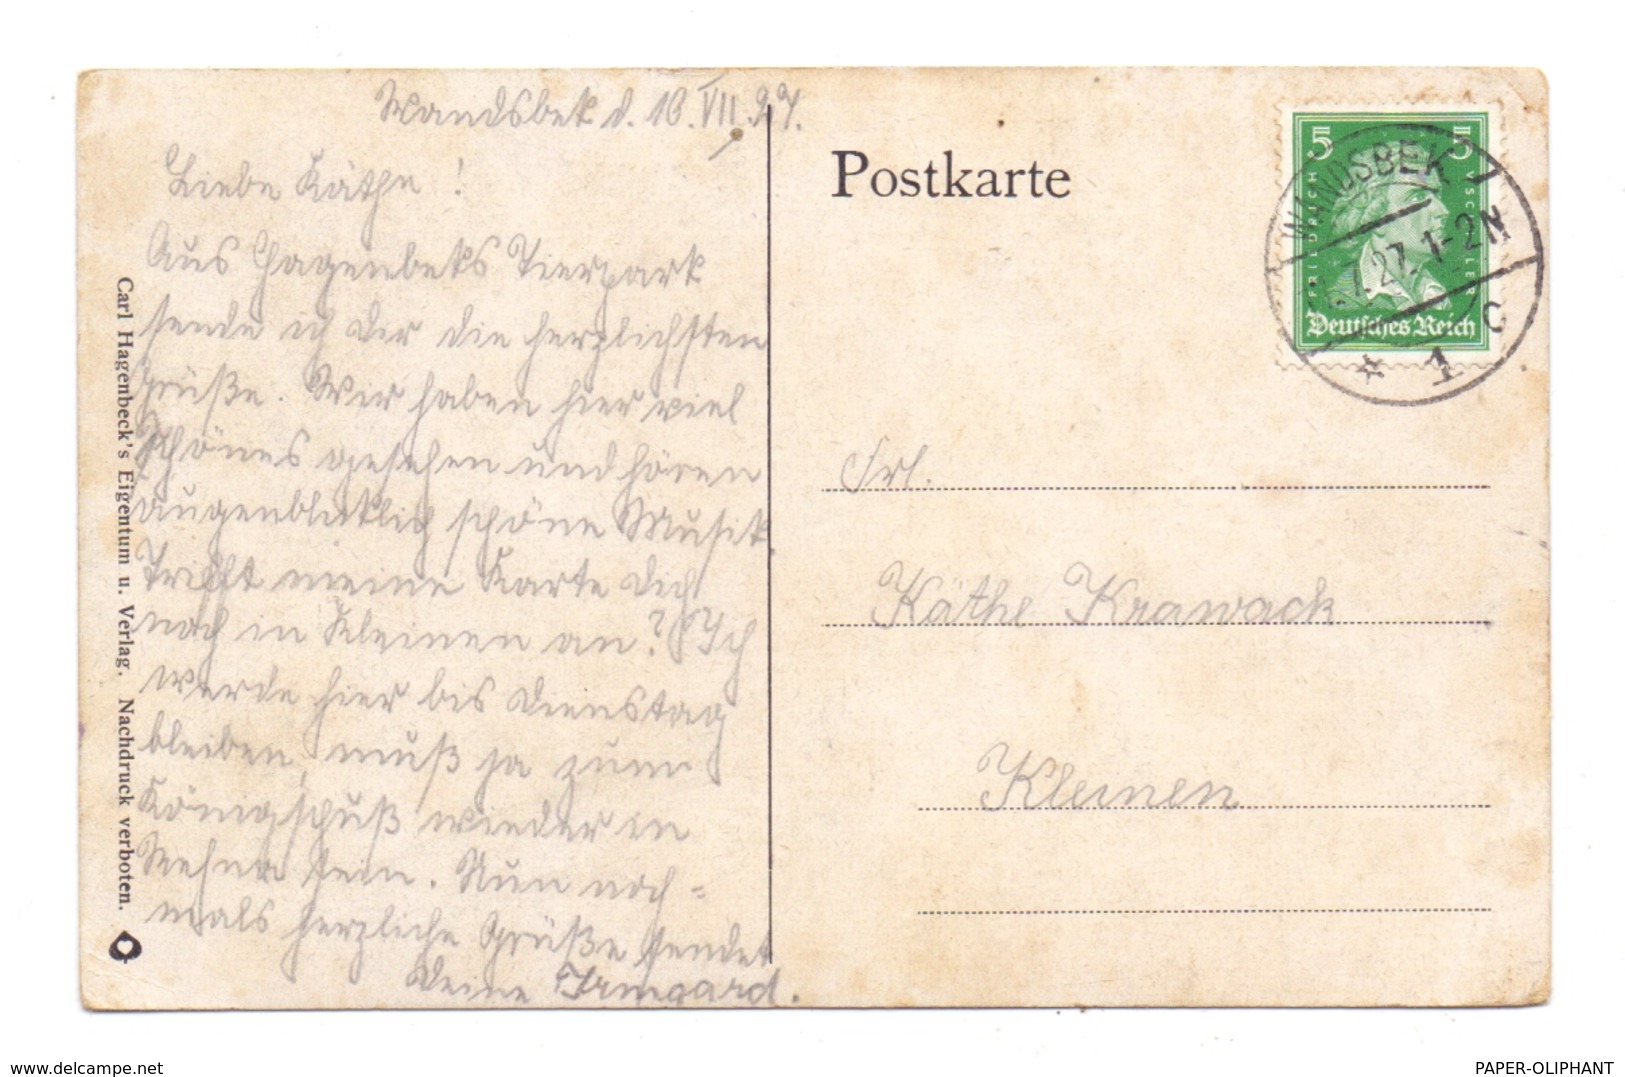 Wandsbek d. 10. VII. 27.
Liebe Käthe!
Aus Hagenbeks Tierpark
sende ich Dir die herzlichsten
Grüße. Wir haben hier viel
schönes gesehen und hören
augenblicklich schöne Musik
Trifft meine Karte Dich
noch in Kleinen an? Ich
werde hier bis Dienstag
bleiben, muß ja zum
Königschuß wieder in
sein. Nun noch=
mals herzliche Grüße sendet
Deine Irmgard.
Carl Hagenbeck's Eigentum u. Verlag. Nachdruck verboten.
Postkarte
5 5
FRIEDRICH V SCHILLER
Deutsches Reich
WANDSBEK
.7.27. 1-2N
* 1 c
Frl.
Käthe Krawack
Kleinen
www.delcampe.net
PAPER-OLIPHANT